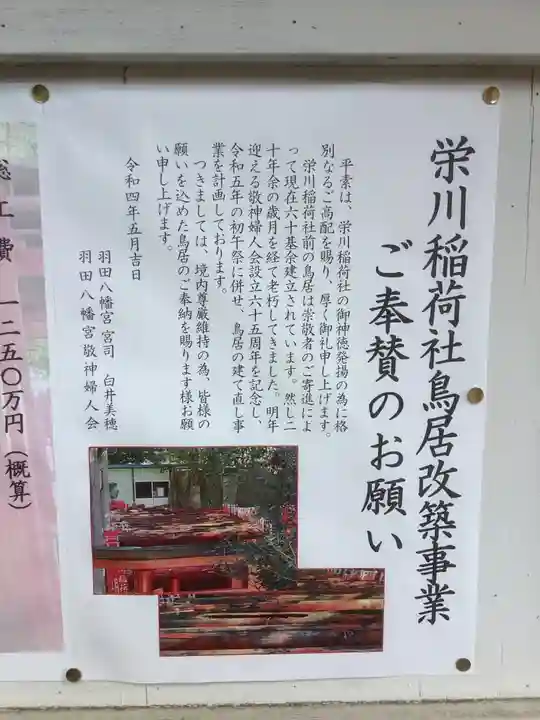 栄川稲荷社鳥居改築事業
ご奉賛のお願い
平素は、栄川稲荷社の御神徳発揚の為に格
別なるご高配を賜り、厚く御礼申し上げます。
栄川稲荷社前の鳥居は崇敬者のご寄進によ
って現在六十基余建立されています。然し二
十年余の歳月を経て老朽してきました。明年
迎える敬神婦人会設立六十五周年を記念し、
令和五年の初午祭に併せ、鳥居の建て直し事
業を計画しております。
つきましては、境内尊厳維持の為、皆様の
願いを込めた鳥居のご奉納を賜ります様お願
い申し上げます。
令和四年五月吉日
羽田八幡宮宮司 白井美穂
羽田八幡宮敬神婦人会
総工費 一二五〇万円(概算)